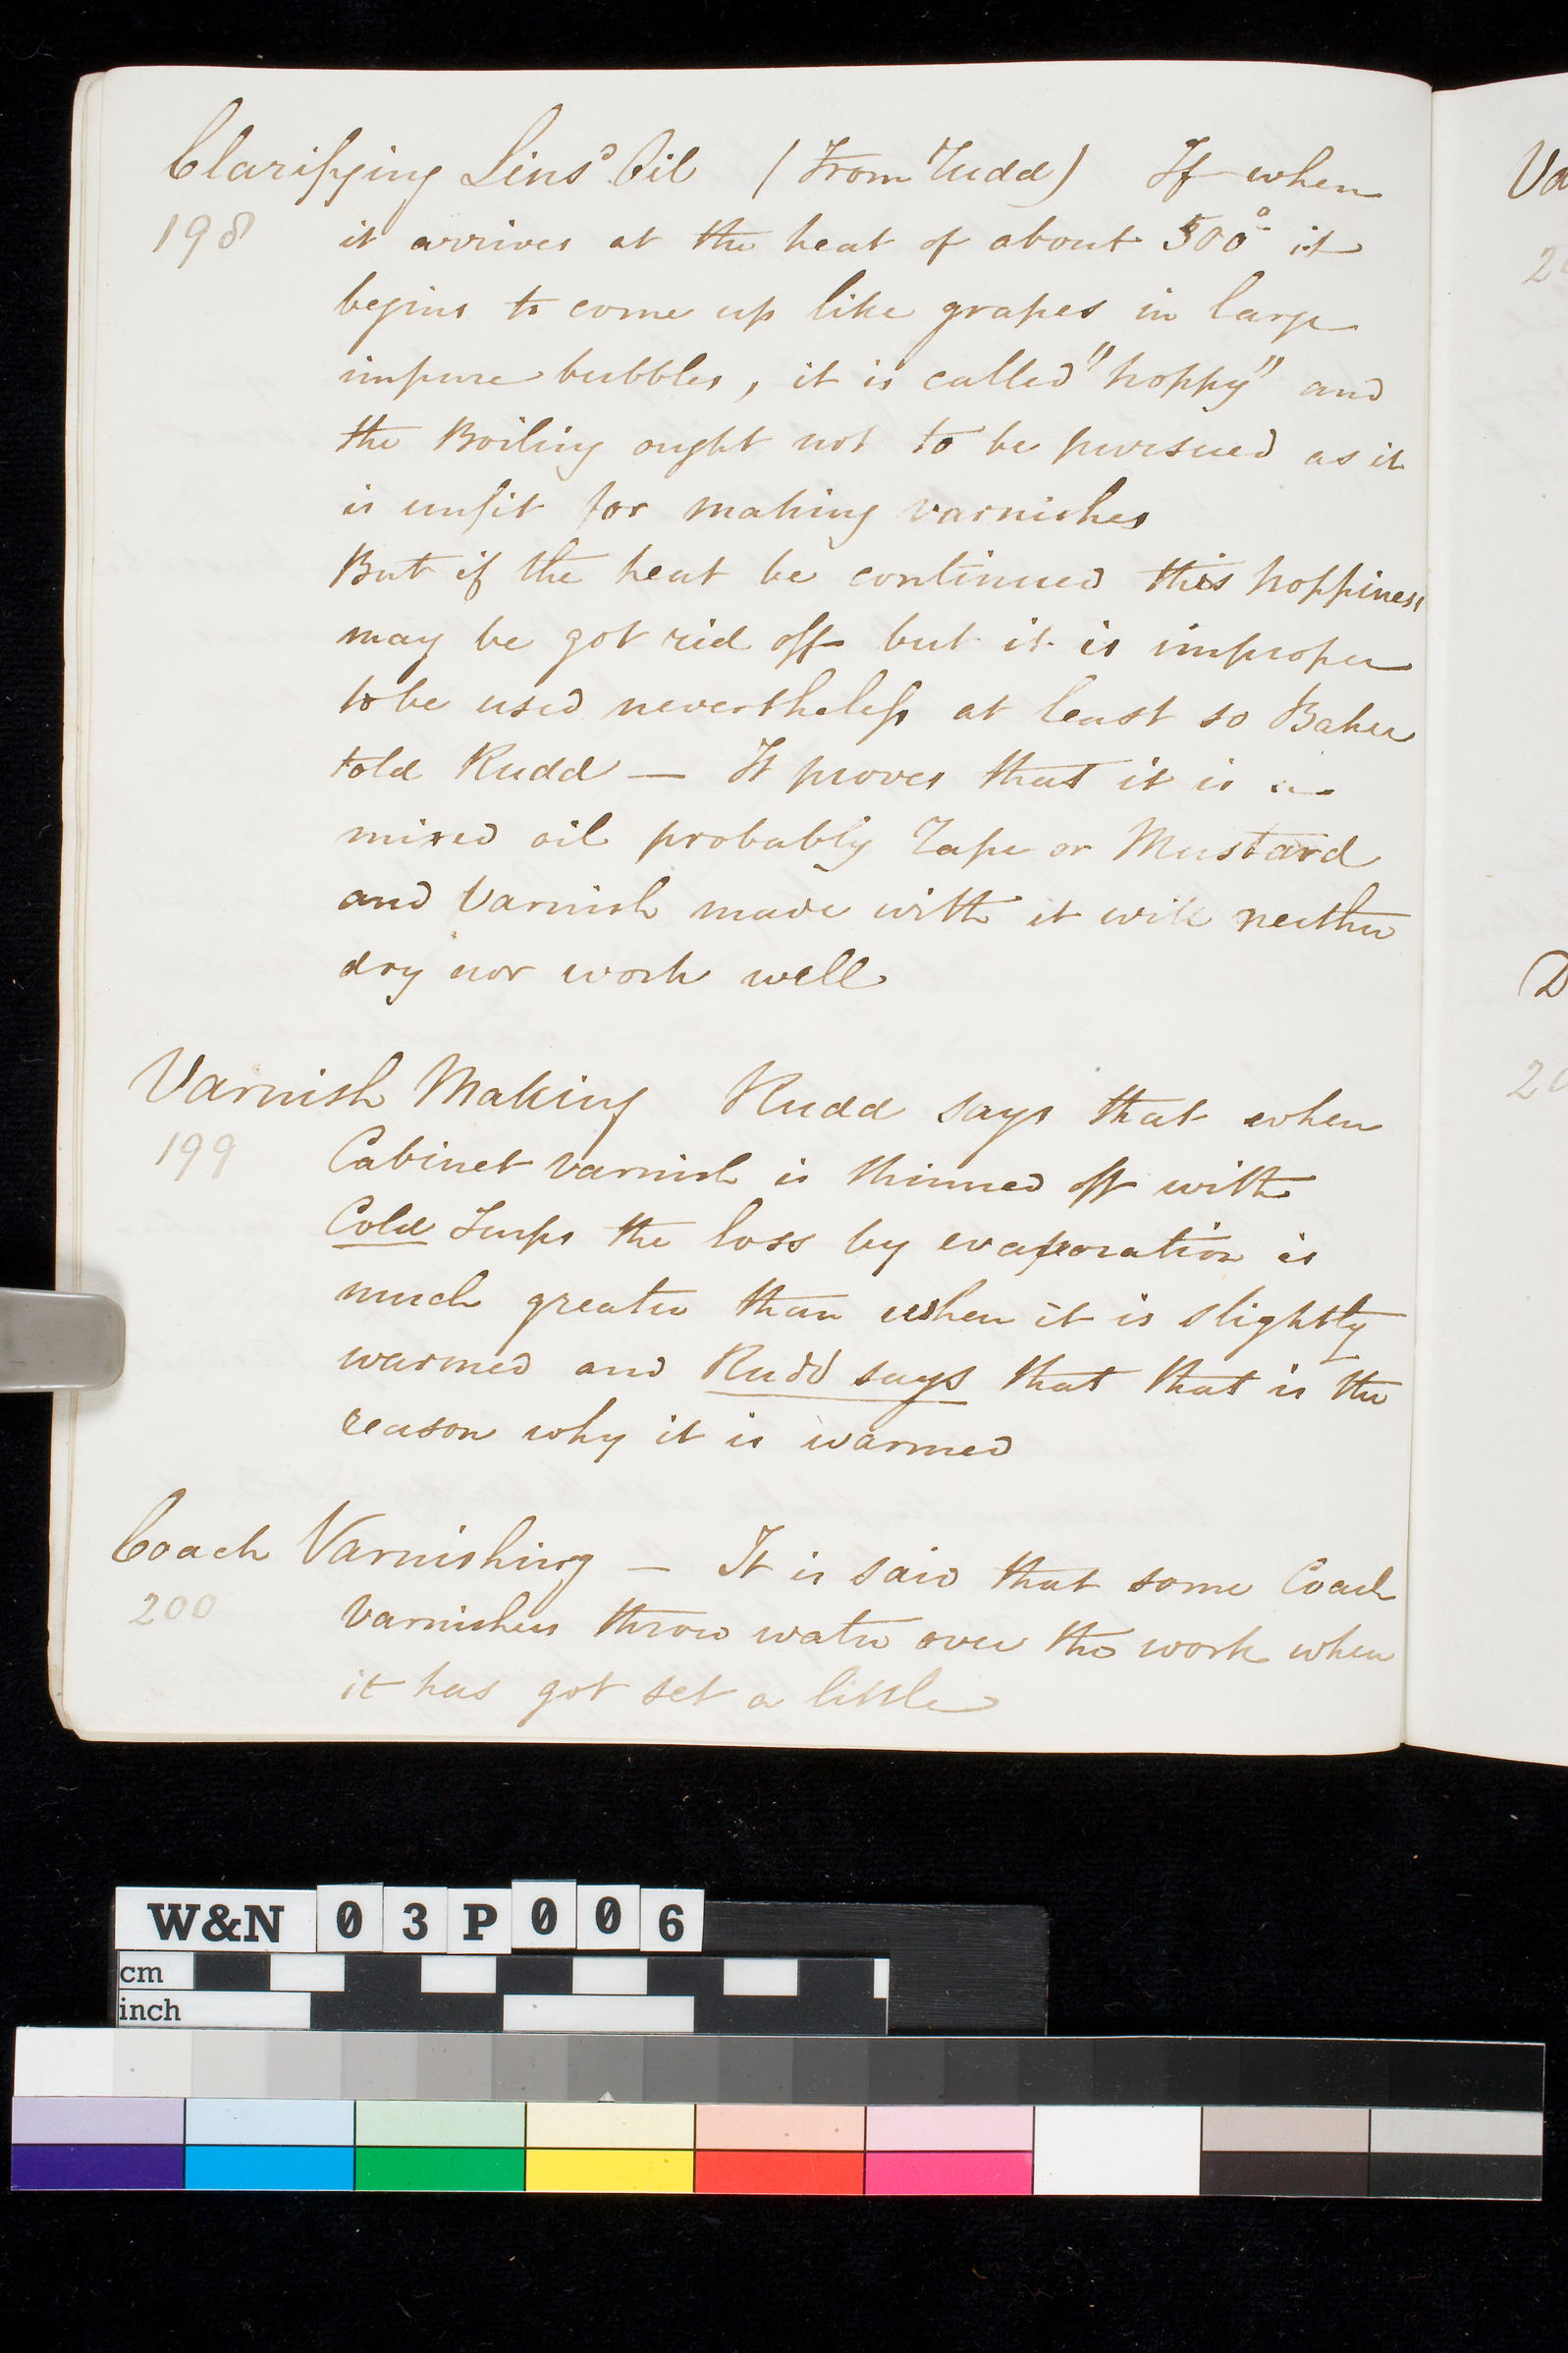 Clarifying Lins^d Oil (From Rudd) If when
198 it arrives at the heat of about 500° it
begins to come up like grapes in large
impure bubbles, it is called "hoppy" and
the Boiling ought not to be pursued as it
is unfit for making varnishes
But if the heat be continued this hoppiness
may be got rid off but it is improper
to be used nevertheless at least so Baker
told Rudd — It proves that it is a
mixed oil probably Rape or Mustard
and Varnish made with it will neither
dry nor work well
Varnish Making Rudd says that when
199 Cabinet varnish is thinned off with
Cold Turps the loss by evaporation is
much greater than when it is slightly
warmed and Rudd says that that is the
reason why it is warmed
Coach Varnishing — It is said that some Coach
200 Varnishers throw water over the work when
it has got set a little
Va
20
D
20
W&N 03P006
cm
inch